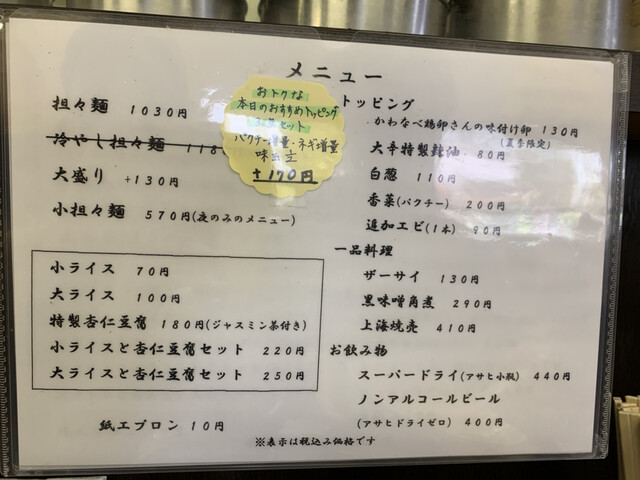 メニュー
担々麺 1030円
冷やし担々麺 118
大盛り +130円
小担々麺 570円(夜のみのメニュー)
おトクな
本日のおすすめトッピング
セット
パクチー増量・ネギ増量
味玉
+170円
小ライス 70円
大ライス 100円
特製杏仁豆腐 180円(ジャスミン茶付き)
小ライスと杏仁豆腐セット 220円
大ライスと杏仁豆腐セット 250円
紙エプロン 10円
トッピング
かわなべ鶏卵さんの味付け卵 130円
(夏季限定)
大辛特製辣油 80円
白葱 110円
香菜(パクチー) 200円
追加エビ(1本) 90円
一品料理
ザーサイ 130円
黒味噌角煮 290円
上海焼売 410円
お飲み物
スーパードライ(アサヒ小瓶) 440円
ノンアルコールビール
(アサヒドライゼロ) 400円
※表示は税込み価格です